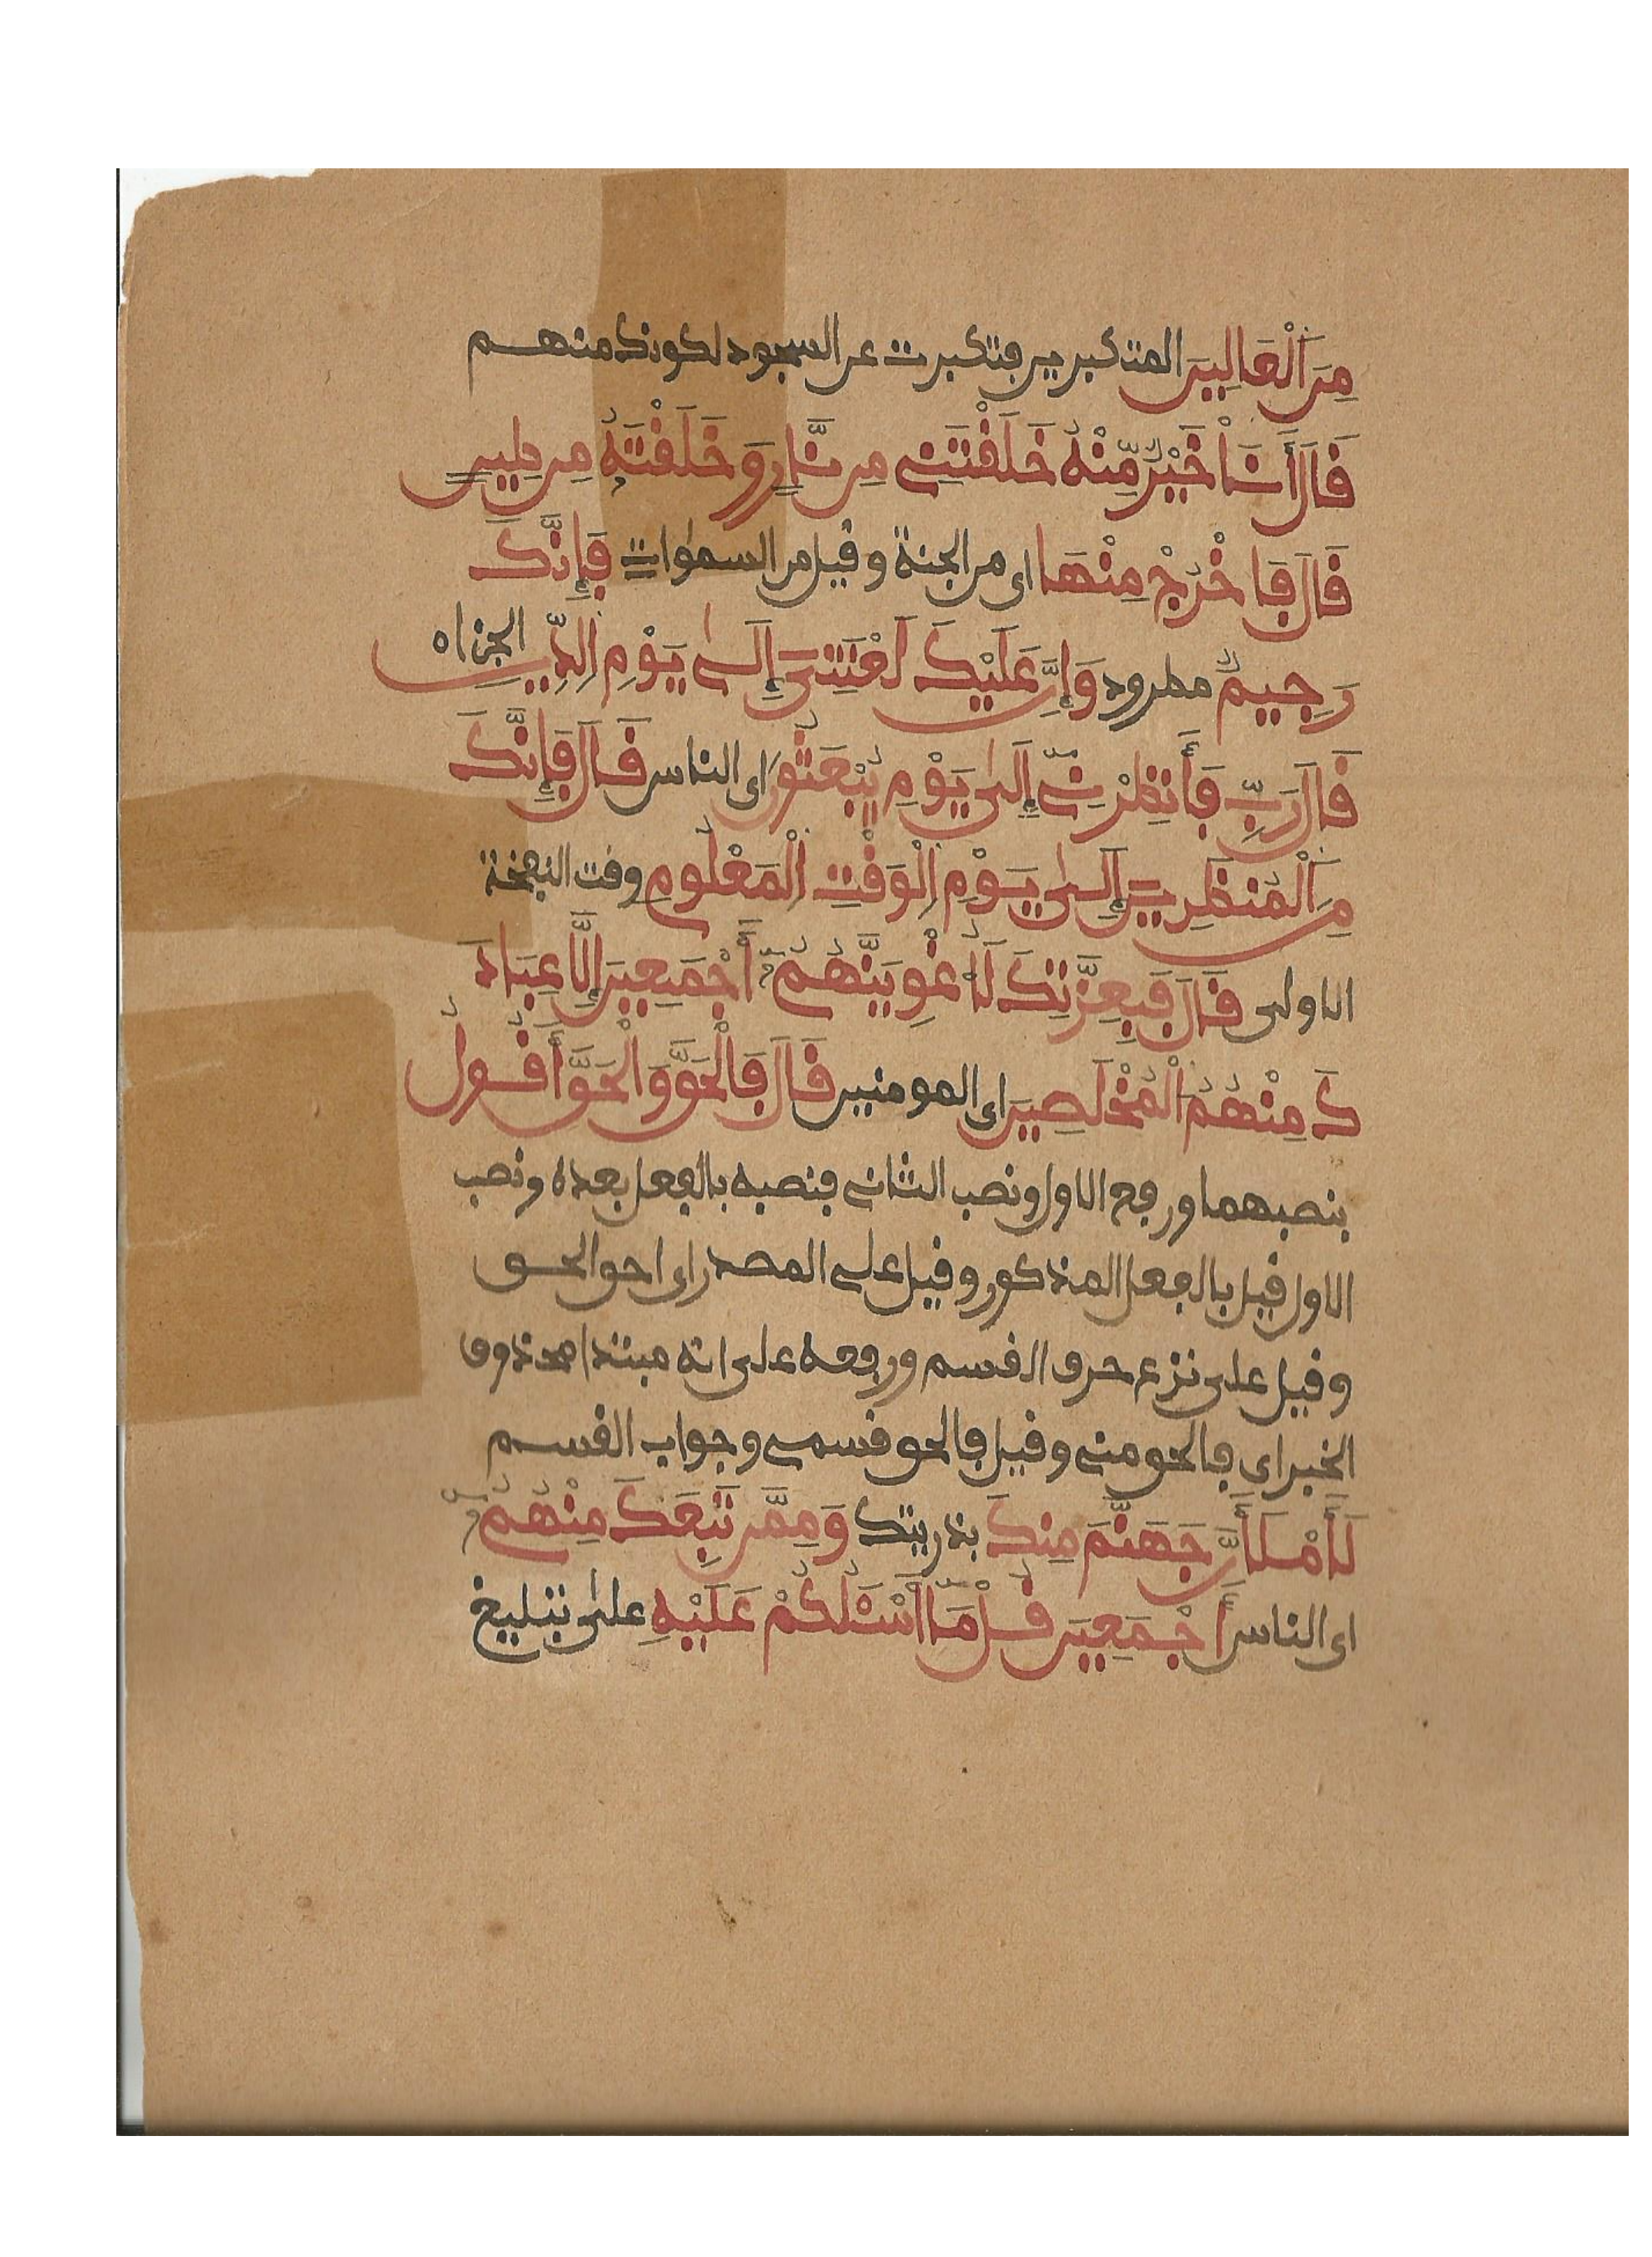 مِنَ اَ۬لْعَالِينَ المتكبرين فتكبرت عن السجود لكونك منهم
قَالَ أَنَا خَيْرٌ مِّنْهُ خَلَقْتَنِي مِن نَّارٍ وَخَلَقْتَهُ مِن طِينٍ
قَالَ فَاخْرُجْ مِنْهَا اى من الجنة وقيل من السموات فَإِنَّكَ
رَجِيمٌ مطرود وَإِنَّ عَلَيْكَ لَعْنَتِيَ إِلَىٰ يَوْمِ اِ۬لدِّينِ الجزاء
قَالَ رَبِّ فَأَنظِرْنِي إِلَىٰ يَوْمِ يُبْعَثُونَ اى الناس قَالَ فَإِنَّكَ
مِنَ اَ۬لْمُنظَرِينَ إِلَىٰ يَوْمِ اِ۬لْوَقْتِ اِ۬لْمَعْلُومِ وقت النفخة
الاولى قَالَ فَبِعِزَّتِكَ لَأُغْوِيَنَّهُمُ أَجْمَعِينَ إِلَّا عِبَادَ
كَ مِنْهُمُ الْمُخْلَصِينَ اى المومنين قَالَ فَالْحَقَّ وَالْحَقَّ أَقُولُ
بنصبهما ورفع الاول ونصب الثانى فنصبه بالفعل بعده ونصب
الاول قيل بالفعل المذكور وقيل على المصدر اى احق الحق
وقيل على نزع حرف القسم ورفعه على انه مبتدا محذوف
الخبر اى فالحق منى وقيل فالحق قسمى وجواب القسم
لَأَمْلَأَنَّ جَهَنَّمَ مِنكَ بذريتك وَمِمَّن تَبِعَكَ مِنْهُمُ
اى الناس أَجْمَعِينَ قُلْ مَا أَسْـَٔلُكُمْ عَلَيْهِ على تبليغ